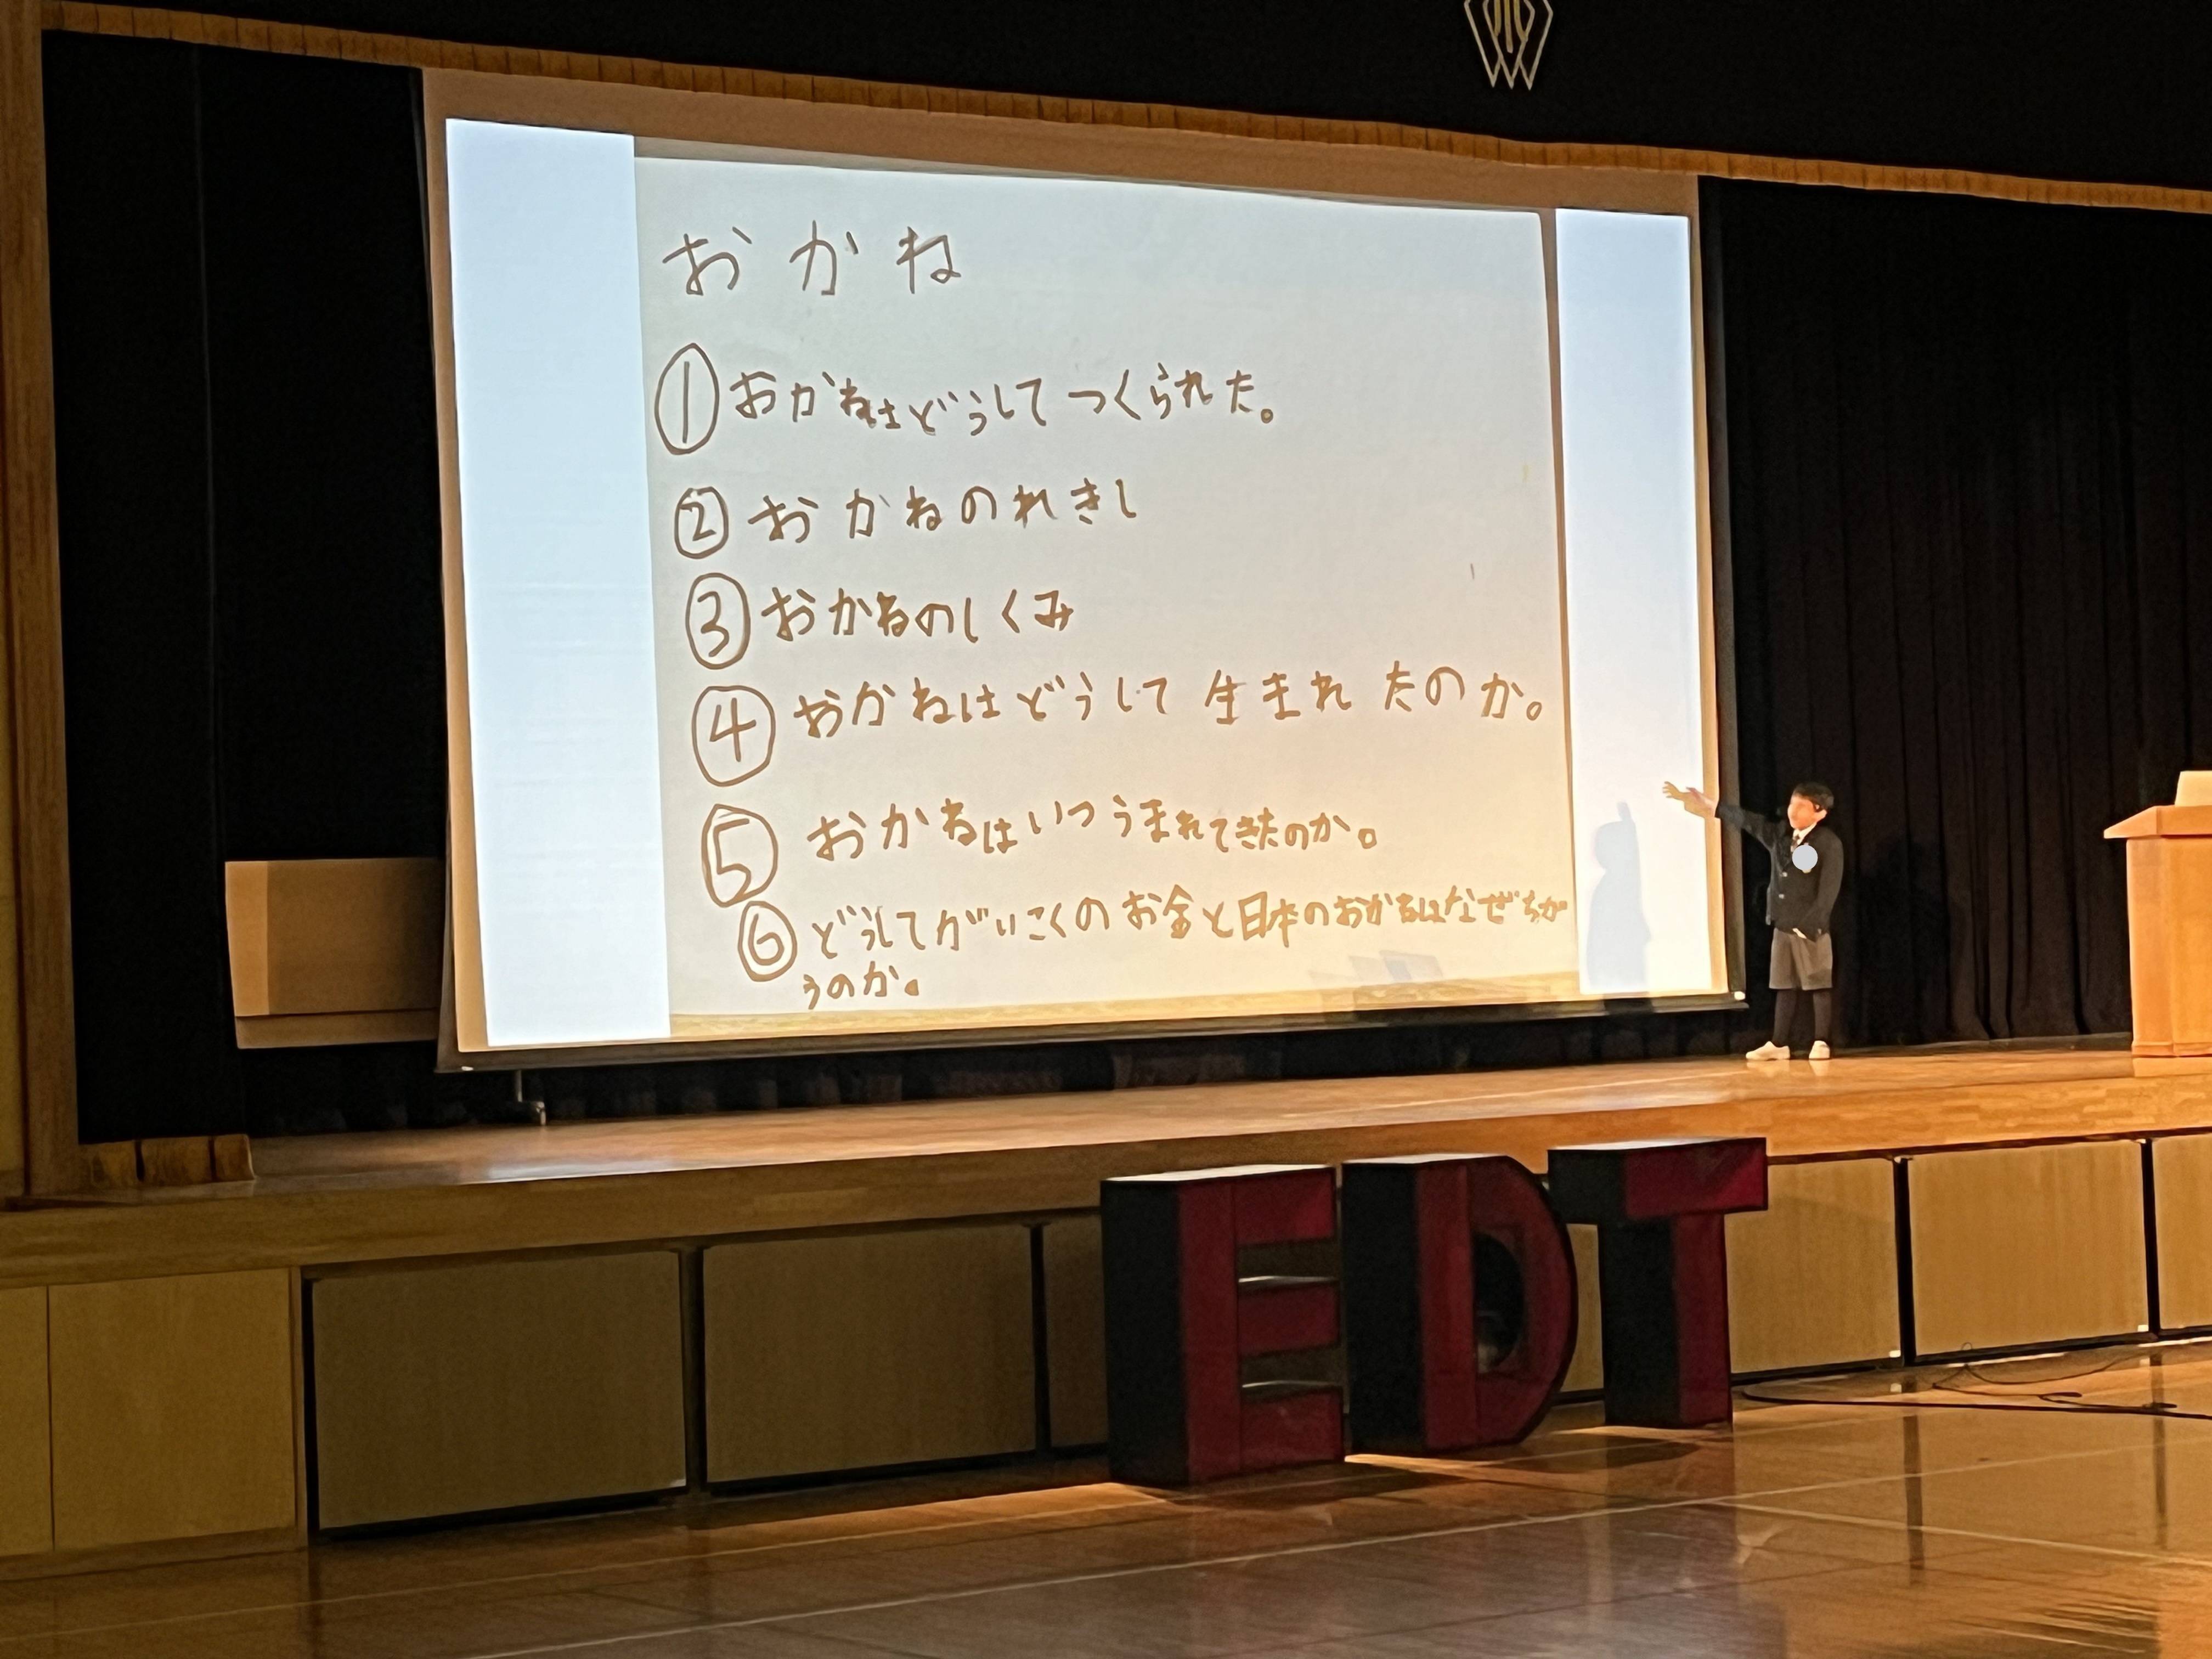 おかね
①おかねはどうしてつくられた。
②おかねのれきし
③おかねのしくみ
④おかねはどうして生まれたのか。
⑤おかねはいつうまれてきたのか。
⑥どうしてがいこくのお金と日本のおかねはなぜちが
うのか。
EDT